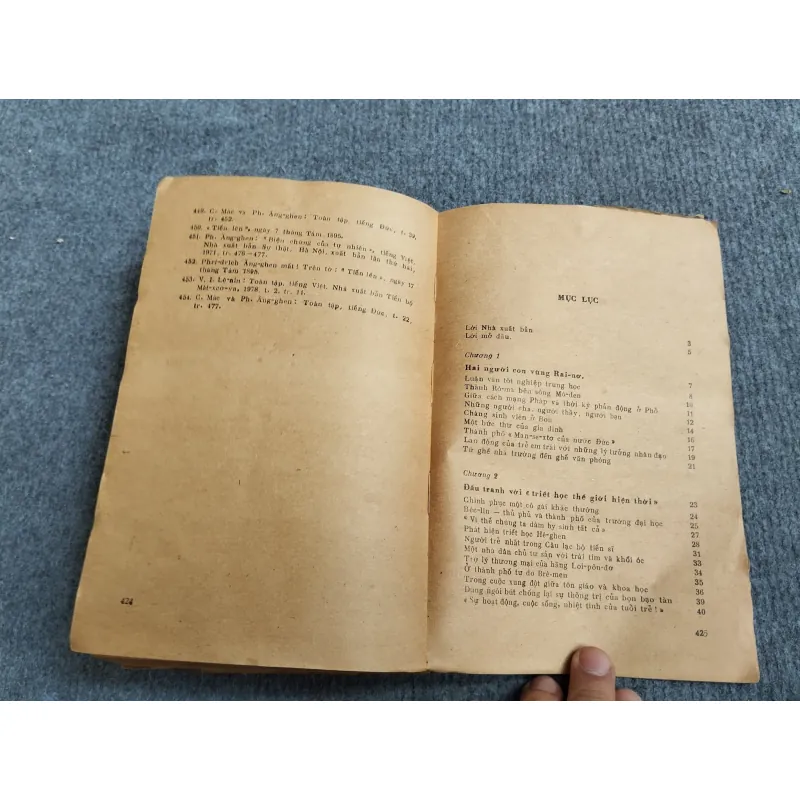 449. C. Mác và Ph. Ăng-ghen: Toàn tập, tiếng Đức, t. 39,
tr. 452.
450. «Tiến lên», ngày 7 tháng Tám 1895.
451. Ph. Ăng-ghen: «Biện chứng của tự nhiên», tiếng Việt,
Nhà xuất bản Sự thật, Hà Nội, xuất bản lần thứ hai,
1971, tr. 476-477.
452. Phri-đrích Ăng-ghen mất! Trên tờ: «Tiến lên», ngày 17
tháng Tám 1895.
453. V. I. Lê-nin: Toàn tập, tiếng Việt, Nhà xuất bản Tiến bộ
Mát-xcơ-va, 1978, t. 2, tr. 14.
454. C. Mác và Ph. Ăng-ghen: Toàn tập, tiếng Đức, t. 22,
tr. 477.
424
MỤC LỤC
Lời Nhà xuất bản 3
Lời mở đầu. 5
Chương 1
Hai người con vùng Rai-nơ.
Luận văn tốt nghiệp trung học 7
Thành Rô-ma bên sông Mô-den 8
Giữa cách mạng Pháp và thời kỳ phản động ở Phổ 10
Những người cha, người thầy, người bạn 11
Chàng sinh viên ở Bon 12
Một bức thư của gia đình 14
Thành phố «Man-se-xtơ của nước Đức» 16
Lao động của trẻ em trái với những lý tưởng nhân đạo 17
Từ ghế nhà trường đến ghế văn phòng 19
21
Chương 2
Đấu tranh với «triết học thế giới hiện thời»
Chinh phục một cô gái khác thường 23
Béc-lin — thủ phủ và thành phố của trường đại học 24
«Vì thế chúng ta dám hy sinh tất cả» 25
Phát hiện triết học Hê-ghen 27
Người trẻ nhất trong Câu lạc bộ tiến sĩ 28
Một nhà dân chủ tư sản với trái tim và khối óc 31
Trợ lý thương mại của hãng Lơi-pôn-đơ 33
Ở thành phố tự do Brê-men 34
Trong cuộc xung đột giữa tôn giáo và khoa học 35
Dùng ngòi bút chống lại sự thống trị của bọn bạo tàn 36
«Sự hoạt động, cuộc sống, nhiệt tình của tuổi trẻ!» 39
40
425